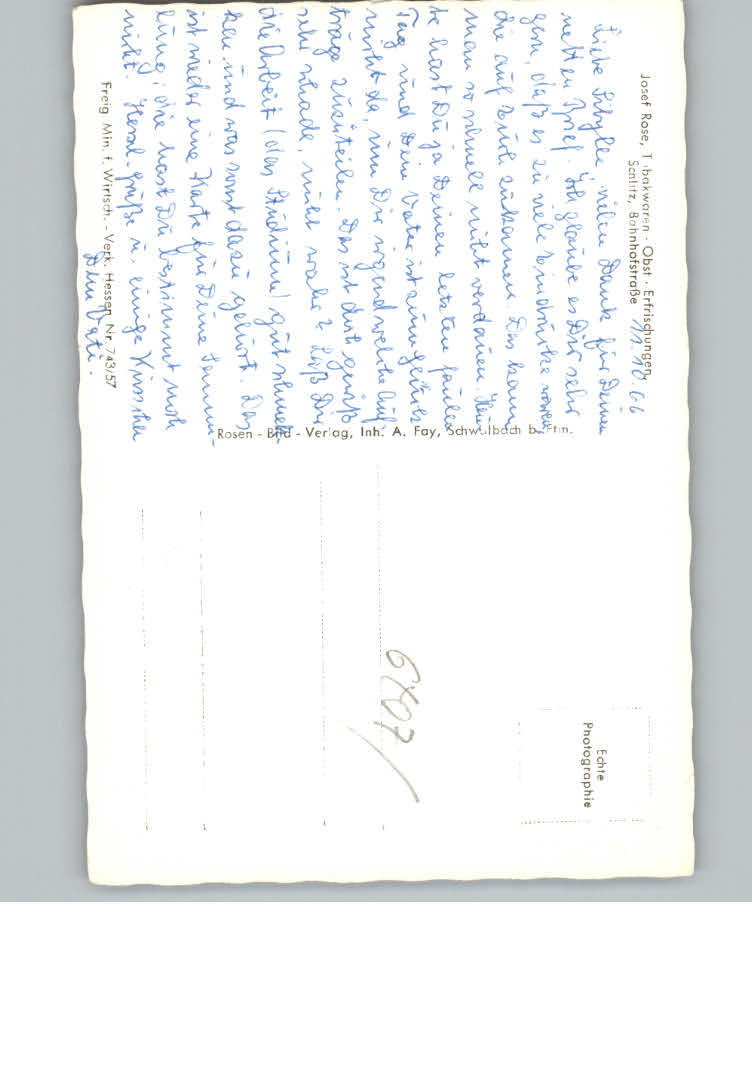 Josef Rose, Tabakwaren - Obst - Erfrischungen
Schlitz, Bahnhofstraße
11.10.66
Liebe Sibylle, vielen Dank für Deinen
netten Brief. Ich glaube es Dir sehr
gern, daß es zu viele Eindrücke waren
die auf Euch zukamen. Das kann
man so schnell nicht verdauen. Heu-
te hast Du ja Deinen letzten faulen
Tag und Dein Vater ist zum Glück
nicht da, um Dir irgendwelche Auf-
träge zuzuteilen. Das ist doch gewiß
sehr schade, nicht wahr? Laß Dir
die Arbeit (das Studium) gut schmek-
ken und was sonst dazu gehört. Das
ist wieder eine Karte für Deine Samm-
lung, die hast Du bestimmt noch
nicht. Herzl. Grüße u. einige Küsschen
Dein Vati.
Freig. Min. f. Wirtsch. - Verk. Hessen Nr. 743/57
Rosen - Bild - Verlag, Inh. A. Fay, Schwalbach b.
Echte
Photographie